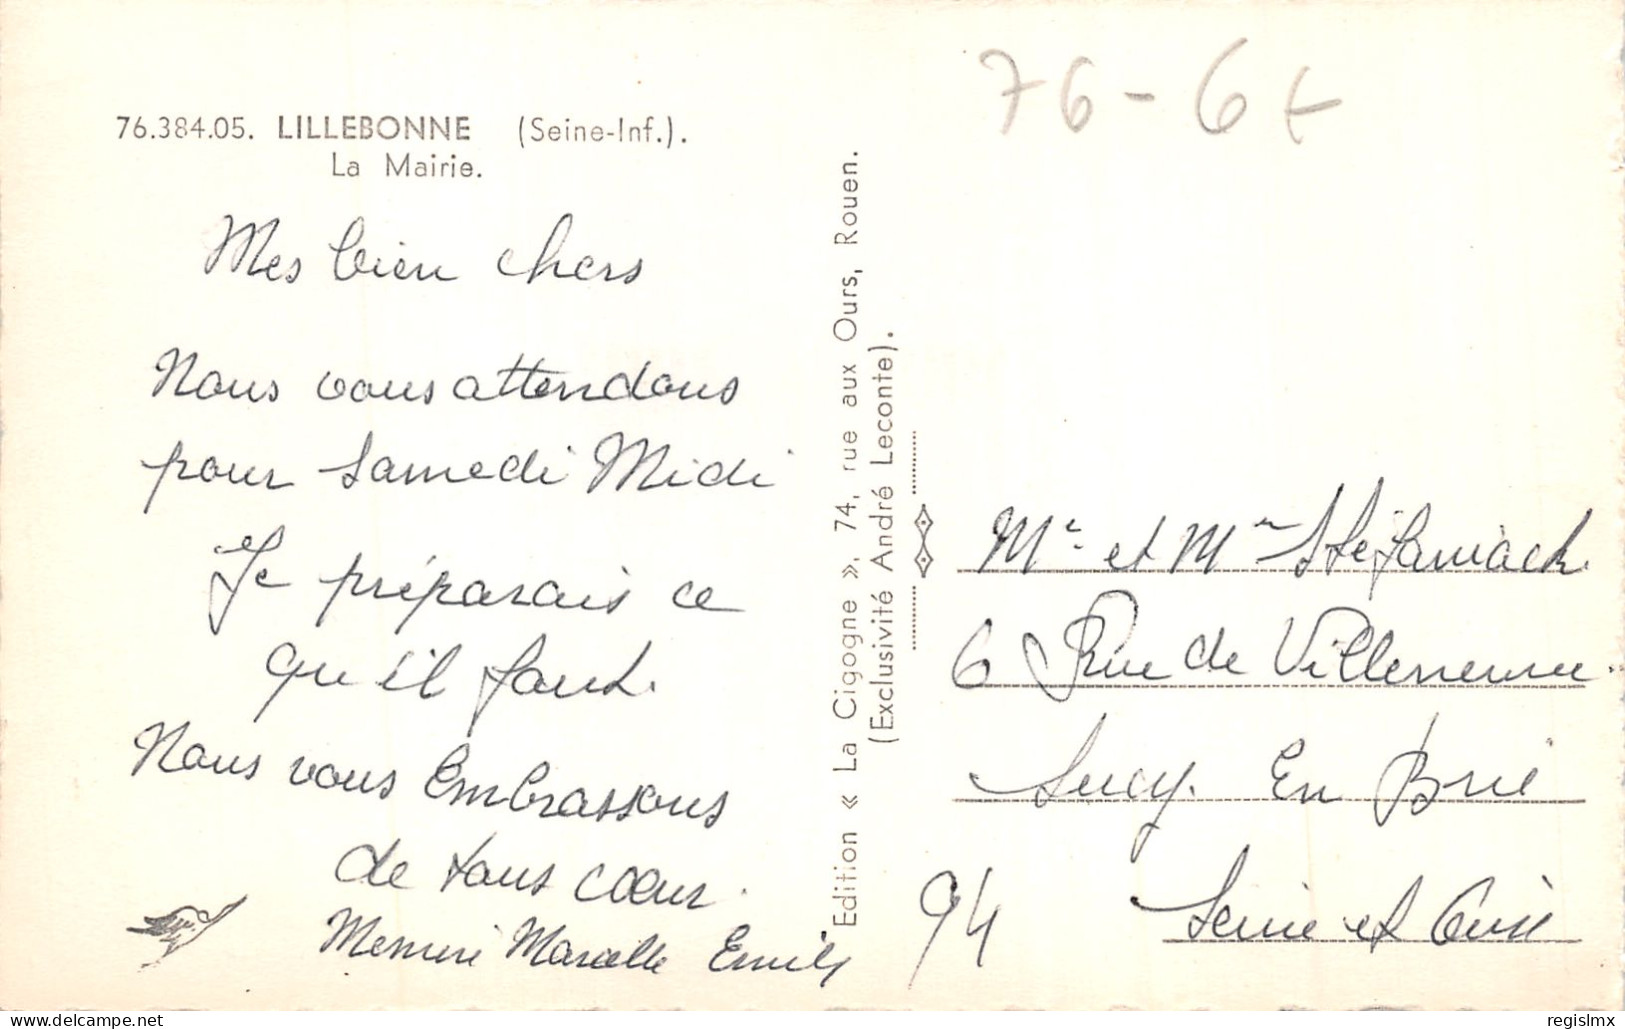 76-6+
76.384.05. LILLEBONNE (Seine-Inf.).
La Mairie.
Mes bien chers
Nous vous attendons
pour Samedi Midi
Je préparais ce
qu'il faut.
Nous vous Embrassons
de tous cœur.
Marcelle Emily
Edition « La Cigogne », 74, rue aux Ours, Rouen.
(Exclusivité André Leconte).
Mr et Mme Stéfaniack.
6 Rue de Villeneuve.
Sucy. En Brie
94 Seine et Oise
www.delcampe.net
regislmx